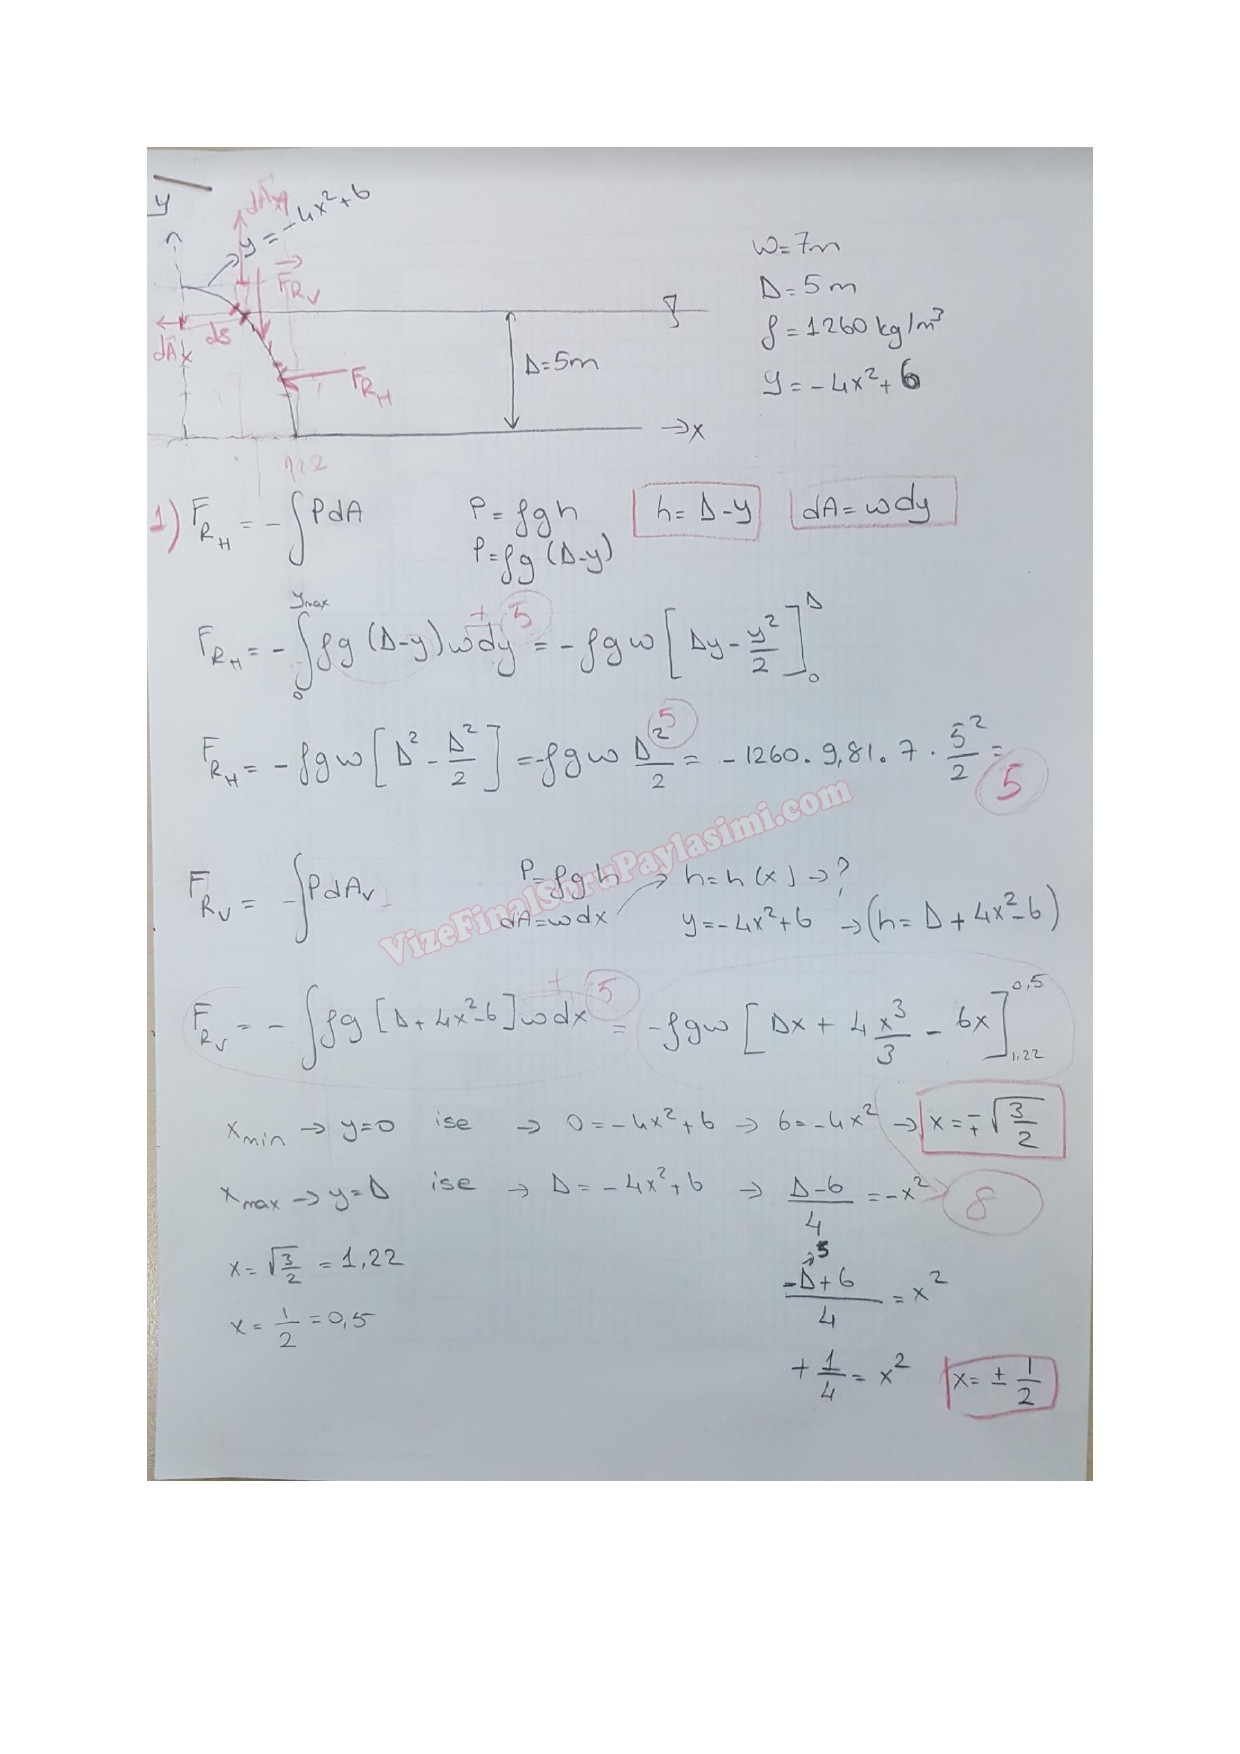 y
dA y
y = -4x²+6
F_RV
dA x
ds
F_RH
D=5m
→x
1,22
w=7m
D=5m
ρ=1260 kg/m³
y=-4x²+6
1) F_RH = -∫PdA P=ρgh h=D-y dA=wdy
P=ρg(D-y)
F_RH = -∫₀^ymax ρg(D-y)wdy = -ρgw[Dy - y²/2]₀^D
+ 5
F_RH = -ρgw[D² - D²/2] = -ρgw D²/2 = -1260.9,81.7.5²/2 =
5
5
VizeFinalSoruPaylasimi.com
F_RV = -∫PdA_V P=ρgh → h=h(x) →?
dA=wdx y=-4x²+6 →(h=D+4x²-6)
F_RV = -∫ρg[D+4x²-6]wdx = -ρgw[Dx + 4x³/3 - 6x]₁,₂₂^0,5
+ 5
x_min → y=0 ise → 0=-4x²+6 → 6=-4x² → x=∓√(3/2)
x_max → y=D ise → D=-4x²+6 → (D-6)/4 = -x²
8
x=√(3/2) = 1,22
→5
(-D+6)/4 = x²
x=1/2=0,5
+1/4 = x² x=±1/2